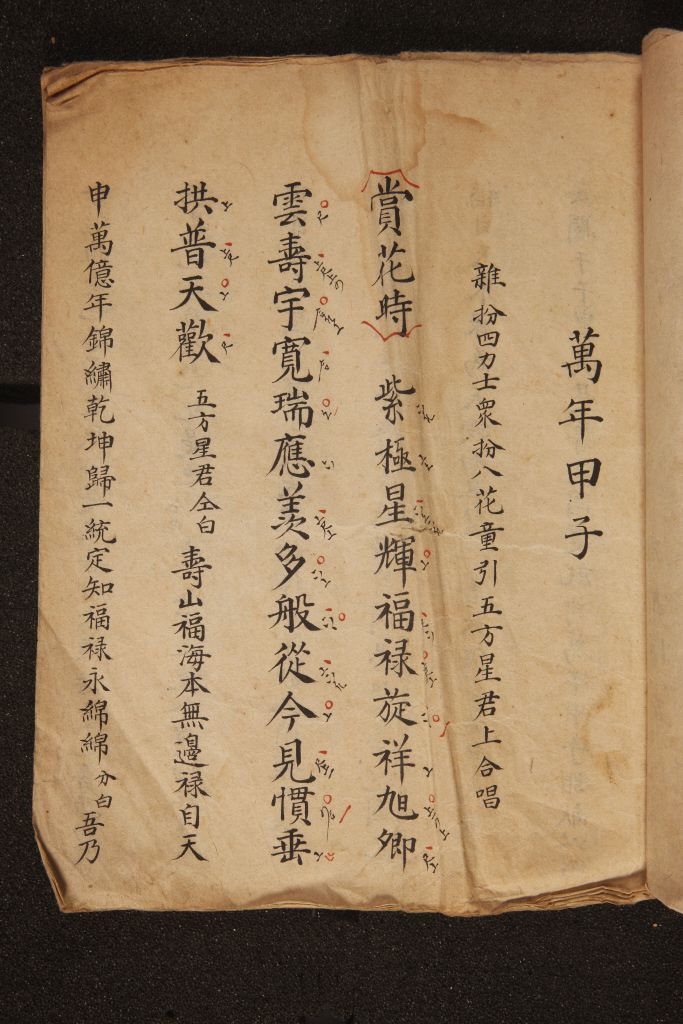 萬年甲子
雜扮四力士衆扮八花童引五方星君上合唱
賞花時　紫極星輝福祿旋祥旭卿
雲壽宇寬瑞應羨多般從今見慣垂
拱普天歡　五方星君仝白　壽山福海本無邊祿自天
申萬億年錦繡乾坤歸一統定知福祿永綿綿　分白　吾乃